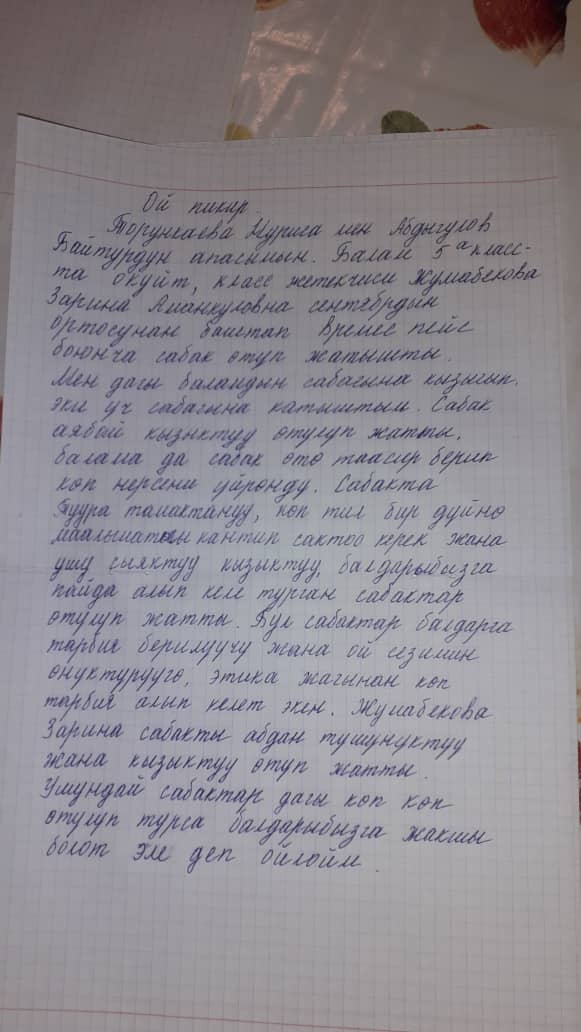 Ой пикир.
Торункаева Нуриса мен Абдыгулов
Байтурдун апасымын. Балам 5ᵃ класс-
та окуйт, класс жетекчиси Жумабекова
Зарина Аманкуловна сентебрдын
ортосунан баштап Времес пейс
боюнча сабак отуп жатышты.
Мен дагы баламдын сабагына кызыгып.
эки уч сабагына катыштым. Сабак
аябай кызыктуу отулуп жатты.
балама да сабак ото таасир берип
коп нерсени уйронду. Сабакта
Туура тамактануу, коп тил бир дуйно
маалыматты кантип сактоо керек жана
ушу сыяктуу кызыктуу, балдарыбызга
пайда алып келе турган сабактар
отулуп жатты. Бул сабактар балдарга
тарбия берилуучу жана ой сезимин
онуктурууго, этика жагынан коп
тарбия алып келет экен. Жумабекова
Зарина сабакты абдан тушунуктуу
жана кызыктуу отуп жатты.
Ушундай сабактар дагы коп коп
отулуп турса балдарыбызга жакшы
болот эле деп ойлойм.